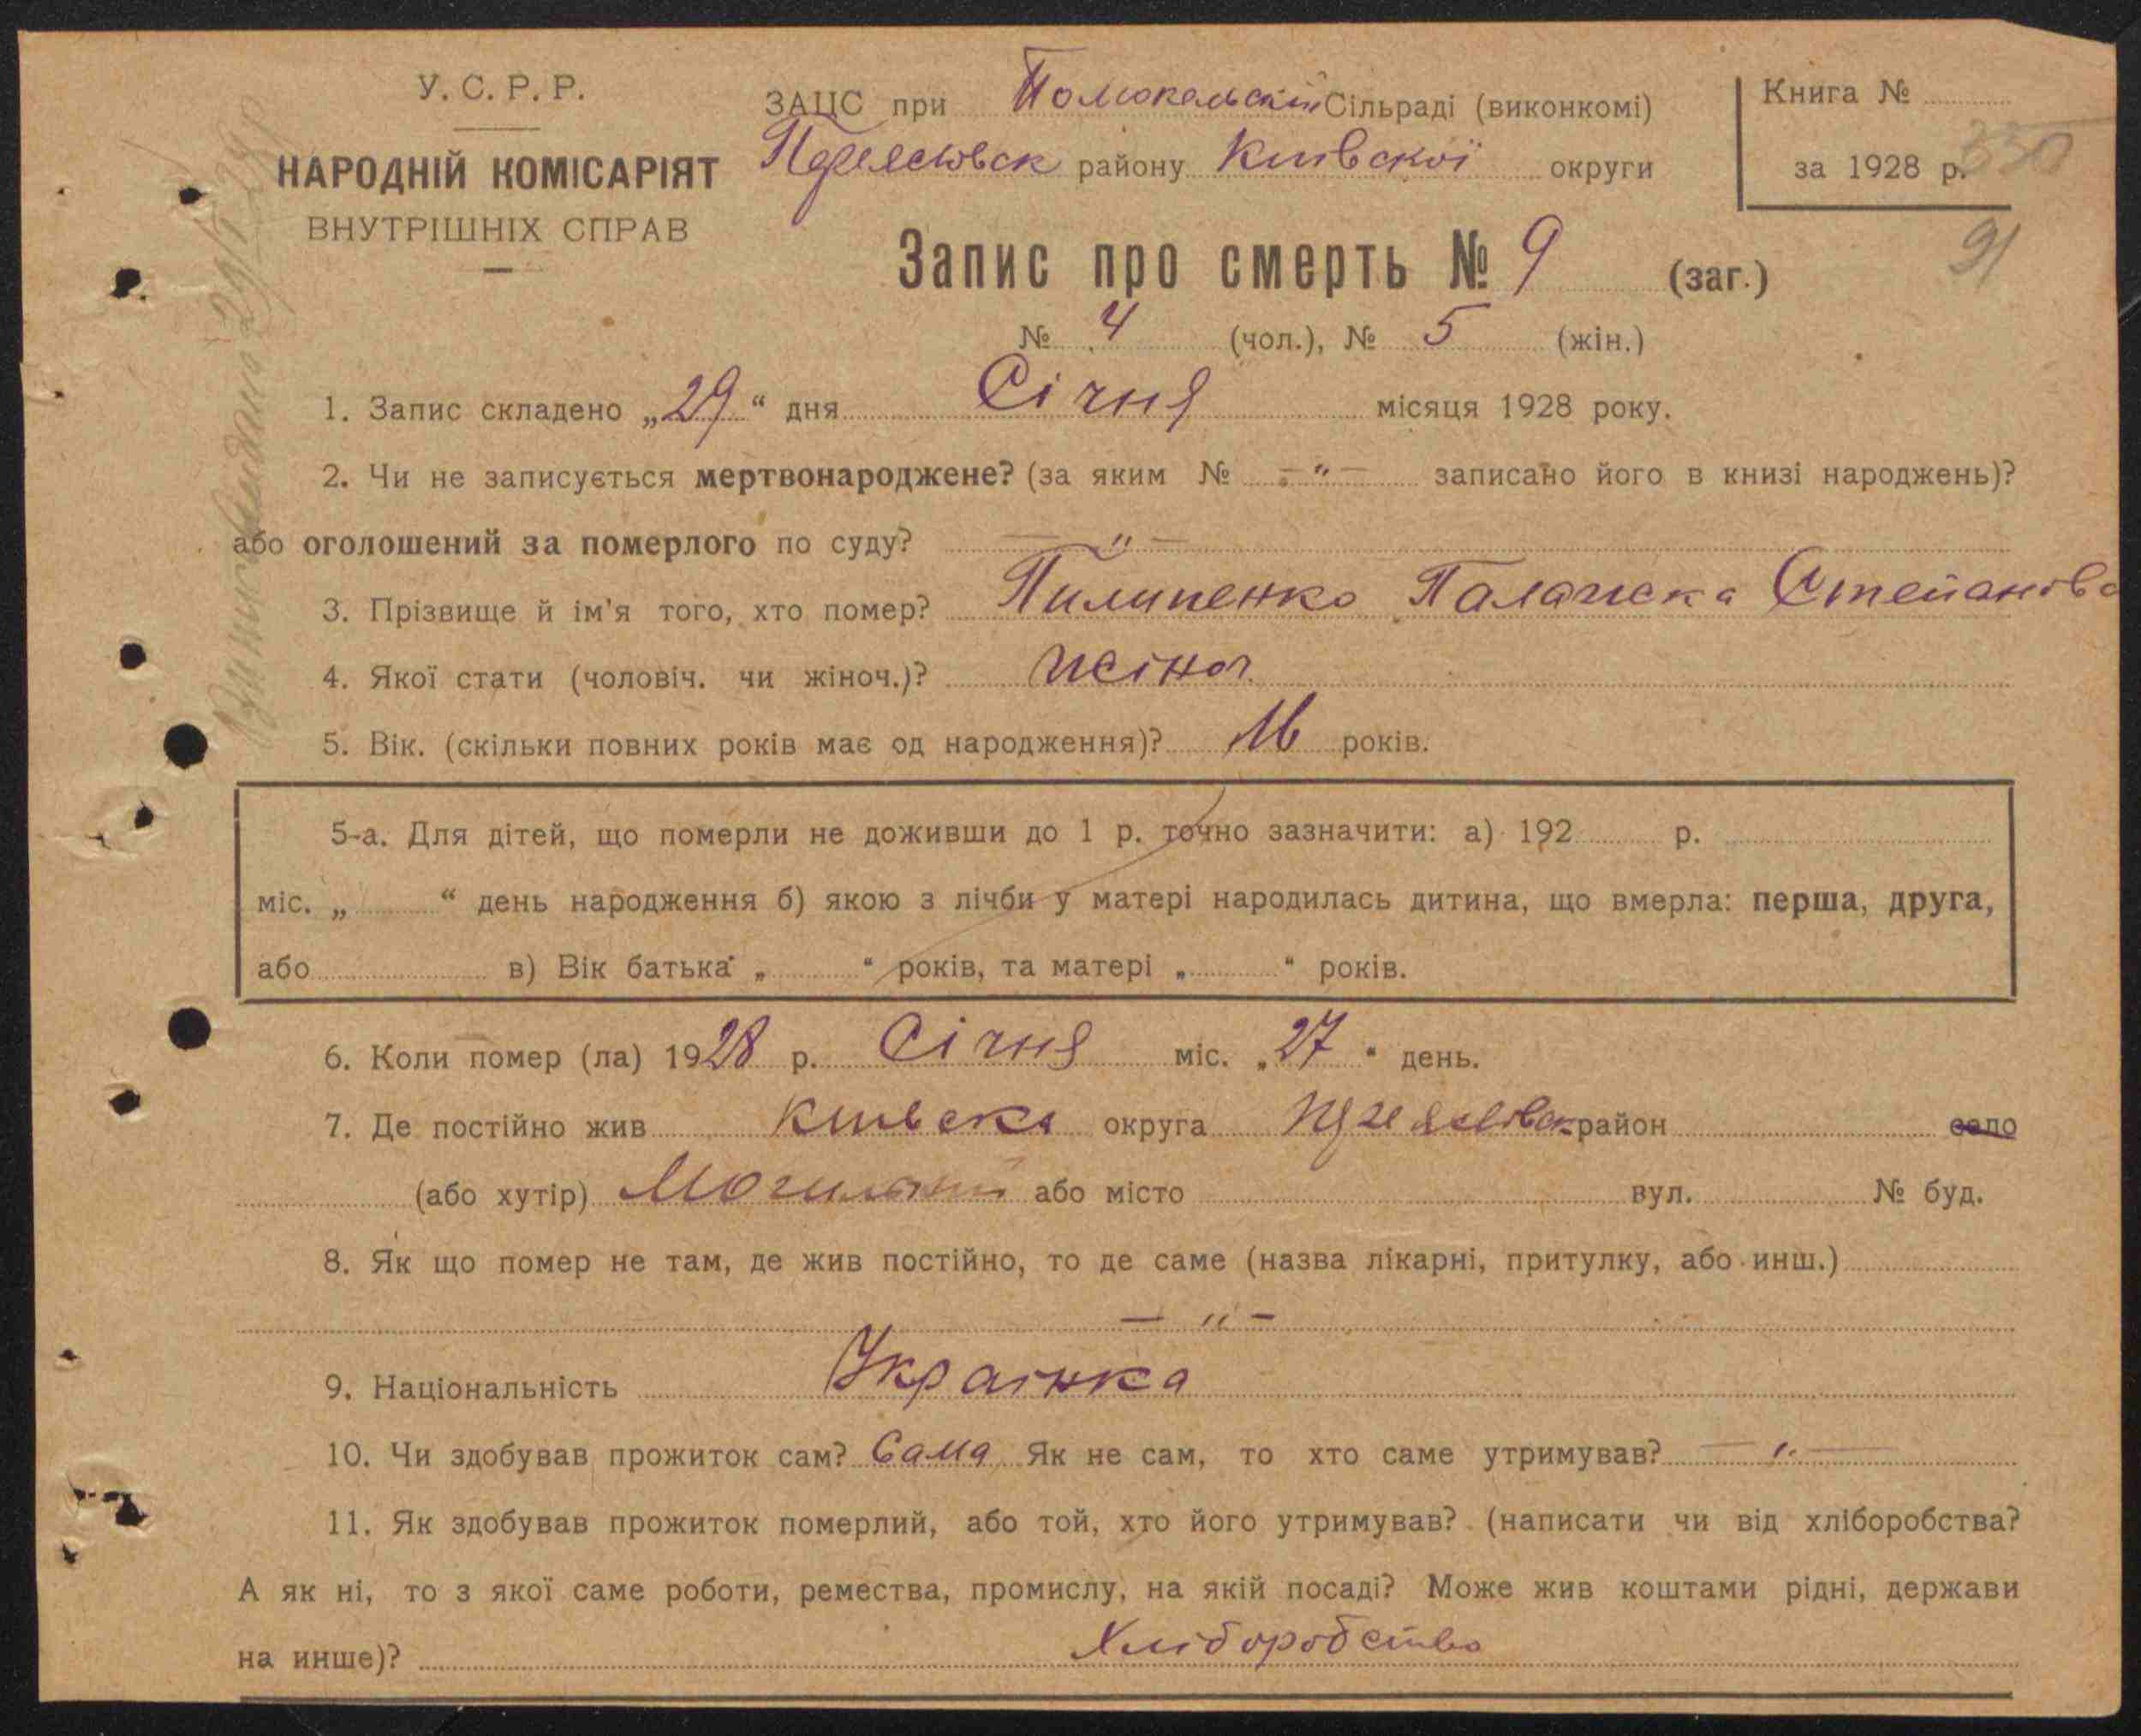 У. С. Р. Р.
НАРОДНІЙ КОМІСАРІЯТ
ВНУТРІШНІХ СПРАВ
ЗАЦС при Помокельскій Сільраді (виконкомі)
Переясловск району Київскої округи
Книга №
за 1928 р. 350
91
Запис про смерть № 9 (заг.)
№ 4 (чол.), № 5 (жін.)
1. Запис складено „29“ дня Січня місяця 1928 року.
2. Чи не записується мертвонароджене? (за яким № — " — записано його в книзі народжень)?
або оголошений за померлого по суду? — " —
3. Прізвище й ім'я того, хто помер? Пилипенко Палажка Степанова
4. Якої стати (чоловіч. чи жіноч.)? жіноч.
5. Вік. (скільки повних років має од народження)? 16 років.
5-а. Для дітей, що померли не доживши до 1 р. точно зазначити: а) 192 р.
міс. „ “ день народження б) якою з лічби у матері народилась дитина, що вмерла: перша, друга,
або в) Вік батька „ “ років, та матері „ “ років.
6. Коли помер (ла) 1928 р. Січня міс. „27“ день.
7. Де постійно жив Київска округа Переяслівск район село
(або хутір) або місто вул. № буд.
8. Як що помер не там, де жив постійно, то де саме (назва лікарні, притулку, або инш.)
— " —
9. Національність Українка
10. Чи здобував прожиток сам? Сама Як не сам, то хто саме утримував? — " —
11. Як здобував прожиток померлий, або той, хто його утримував? (написати чи від хліборобства?
А як ні, то з якої саме роботи, ремества, промислу, на якій посаді? Може жив коштами рідні, держави
на инше)? Хліборобство